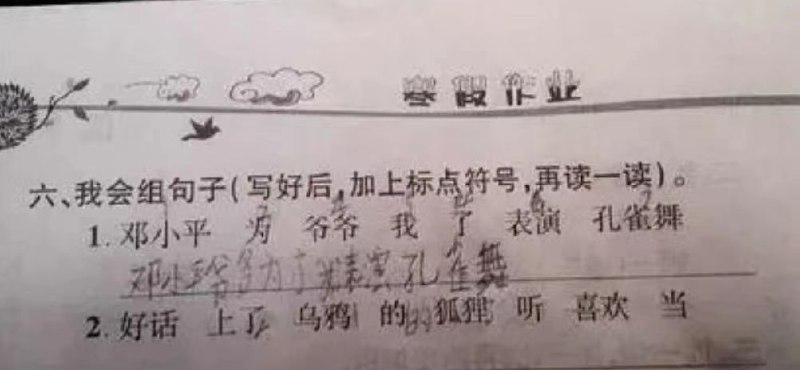 寒假作业
六、我会组句子(写好后,加上标点符号,再读一读)。
1. 邓小平 为 爷爷 我 了 表演 孔雀舞
邓小平爷爷为了 孔雀舞
2. 好话 上了 乌鸦 的 狐狸 听 喜欢 当